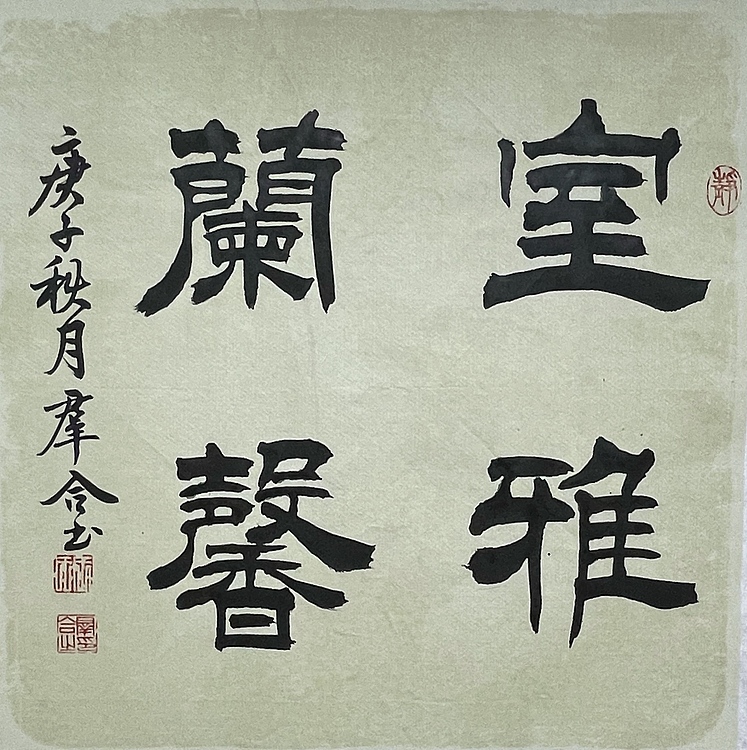 室雅
蘭馨
庚子秋月羣合书